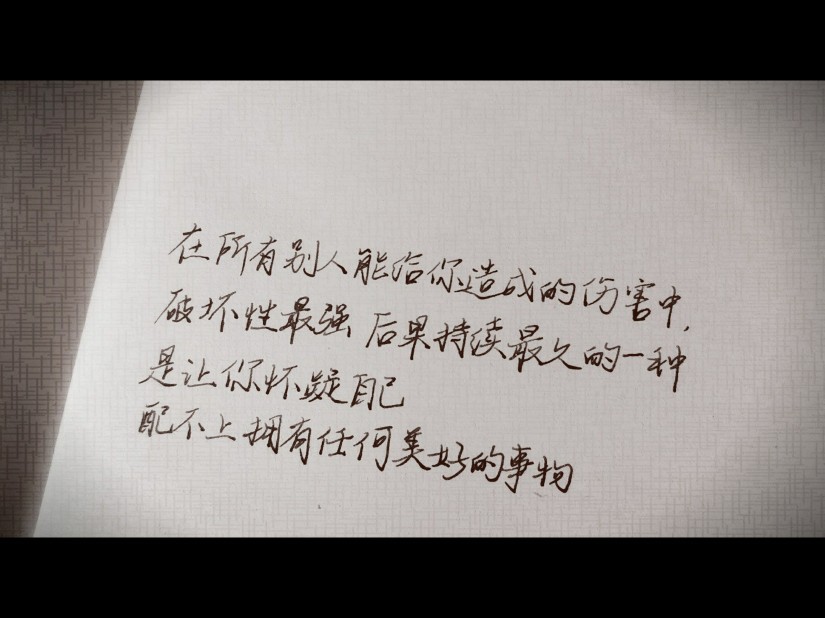 在所有别人能给你造成的伤害中,
破坏性最强 后果持续最久的一种
是让你怀疑自己
配不上拥有任何美好的事物